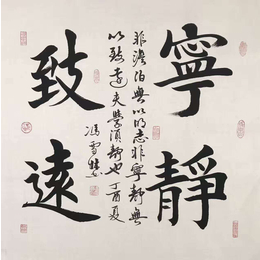 寧靜
非澹泊無以明志非寧靜無
以致遠夫學須靜也丁酉夏
馮雪
致遠